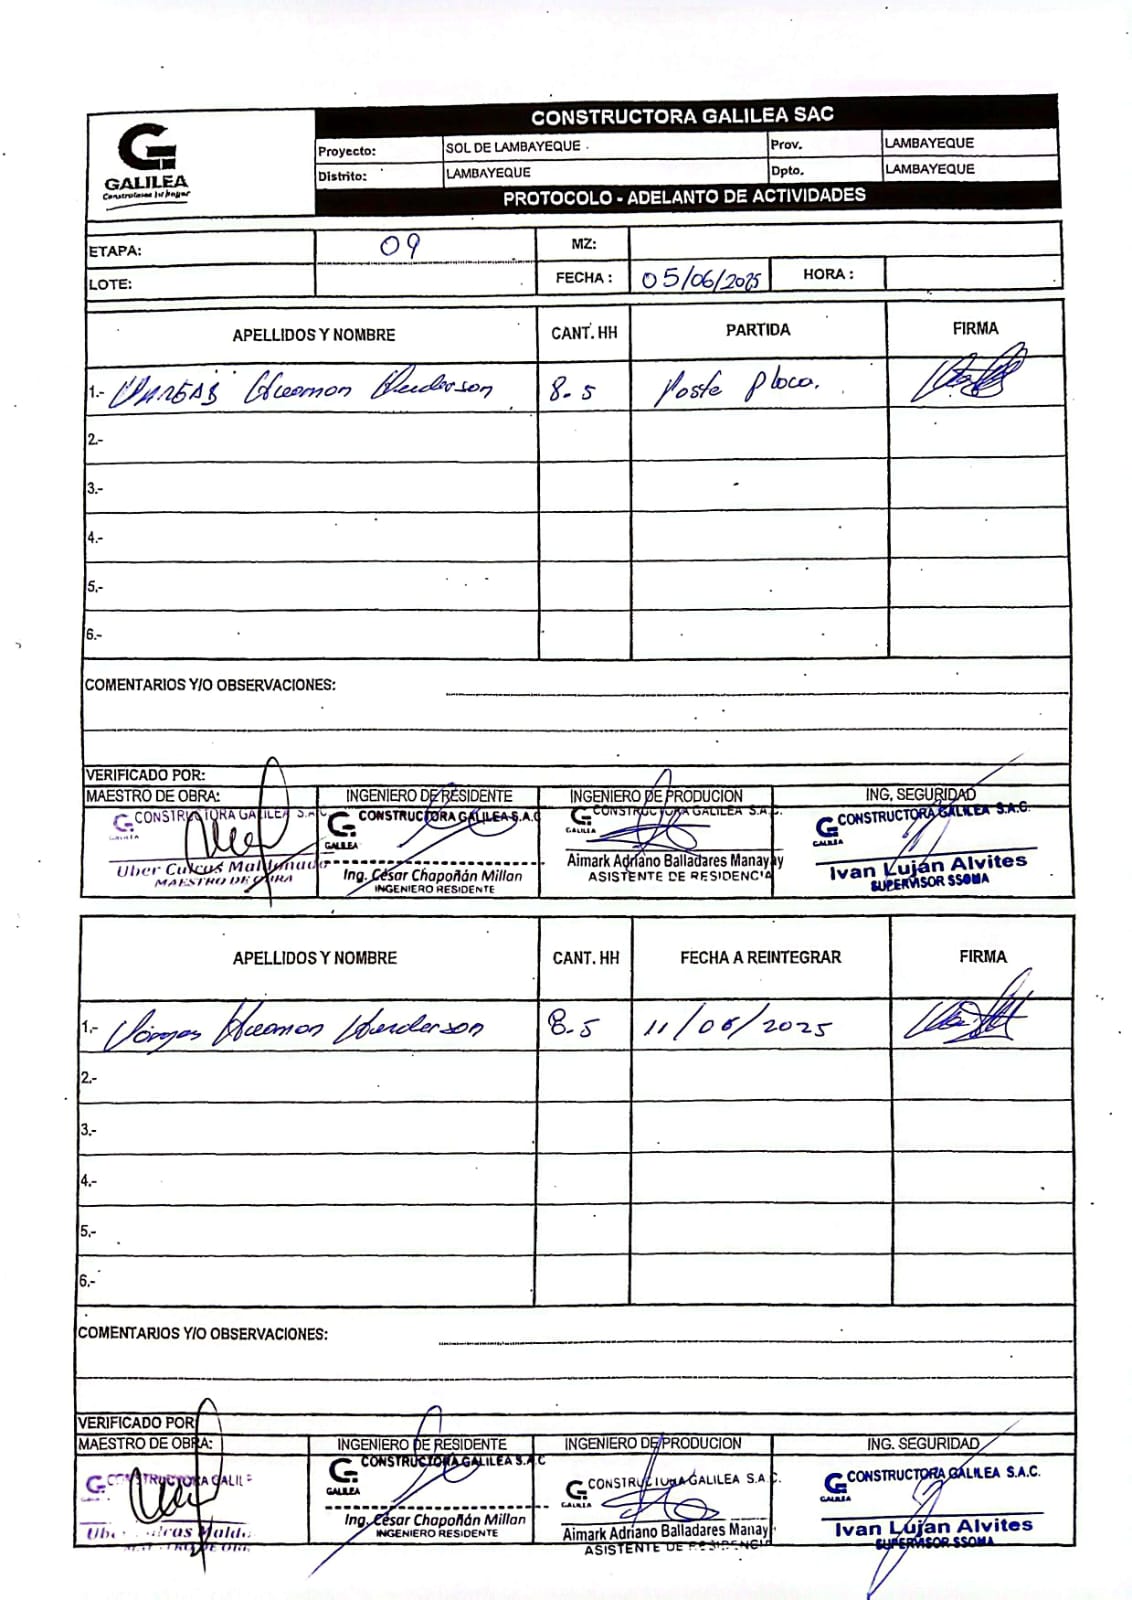 GALILEA
Construimos tu hogar
CONSTRUCTORA GALILEA SAC
Proyecto: SOL DE LAMBAYEQUE Prov. LAMBAYEQUE
Distrito: LAMBAYEQUE Dpto. LAMBAYEQUE
PROTOCOLO - ADELANTO DE ACTIVIDADES
ETAPA: 09 MZ:
LOTE: FECHA : 05/06/2025 HORA :
APELLIDOS Y NOMBRE CANT. HH PARTIDA FIRMA
1.- VARGAS Huamon Henderson 8.5 Poste placa.
2.-
3.-
4.-
5.-
6.-
COMENTARIOS Y/O OBSERVACIONES:
VERIFICADO POR:
MAESTRO DE OBRA: INGENIERO DE RESIDENTE INGENIERO DE PRODUCION ING, SEGURIDAD
CONSTRUCTORA GALILEA S.A.C CONSTRUCTORA GALILEA S.A.C CONSTRUCTORA GALILEA S.A.C. CONSTRUCTORA GALILEA S.A.C.
GALILEA GALILEA GALILEA GALILEA
Uber Culcus Maldonado Ing. César Chapoñán Millan Aimark Adriano Balladares Manayay Ivan Luján Alvites
MAESTRO DE OBRA INGENIERO RESIDENTE ASISTENTE DE RESIDENCIA SUPERVISOR SSOMA
APELLIDOS Y NOMBRE CANT. HH FECHA A REINTEGRAR FIRMA
1.- Vargas Huamon Henderson 8.5 11/06/2025
2.-
3.-
4.-
5.-
6.-
COMENTARIOS Y/O OBSERVACIONES:
VERIFICADO POR
MAESTRO DE OBRA: INGENIERO DE RESIDENTE INGENIERO DE PRODUCION ING. SEGURIDAD
CONSTRUCTORA GALILE CONSTRUCTORA GALILEA S.A.C CONSTRUCTORA GALILEA S.A.C. CONSTRUCTORA GALILEA S.A.C.
GALILEA GALILEA GALILEA
Uber Culcas Maldo Ing. César Chapoñán Millan Aimark Adriano Balladares Manay Ivan Luján Alvites
MAESTRO DE OBR INGENIERO RESIDENTE ASISTENTE DE RESIDENCIA SUPERVISOR SSOMA